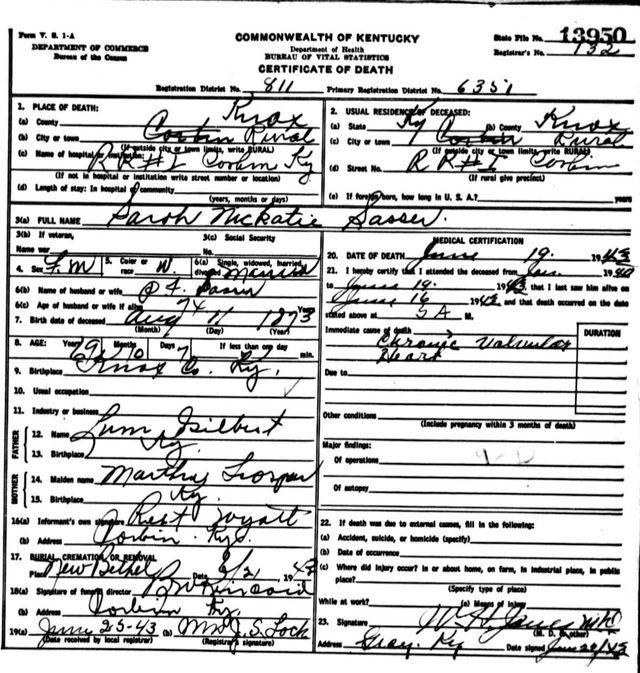 Form V. S. 1-A
DEPARTMENT OF COMMERCE
Bureau of the Census
COMMONWEALTH OF KENTUCKY
Department of Health
BUREAU OF VITAL STATISTICS
CERTIFICATE OF DEATH
State File No. 13950
Registrar's No. 132
Registration District No. 811 Primary Registration District No. 6351
1. PLACE OF DEATH:
(a) County Knox
(b) City or town Corbin Rural
(If outside city or town limits, write RURAL)
(c) Name of hospital or institution: RR#1 Corbin Ky
(If not in hospital or institution write street number or location)
(d) Length of stay: In hospital or community
(years, months or days)
2. USUAL RESIDENCE OF DECEASED:
(a) State Ky (b) County Knox
(c) City or town Corbin Rural
(If outside city or town limits, write RURAL)
(d) Street No. RR#1 Corbin
(If rural give precinct)
(e) If foreign born, how long in U. S. A.? years
3(a) FULL NAME Sarah McKatie Sasser
3(b) If veteran,
Name war
3(c) Social Security
No.
4. Sex F.M 5. Color or race W. 6(a) Single, widowed, married, divorced Married
6(b) Name of husband or wife
6(c) Age of husband or wife if alive 74 Years
7. Birth date of deceased Aug 1873
(Month) (Day) (Year)
8. AGE: Years 69 Months 10 Days 7 If less than one day
hr. min.
9. Birthplace Knox Co. Ky.
10. Usual occupation
11. Industry or business
FATHER
12. Name Lum Gilbert
13. Birthplace Ky.
MOTHER
14. Maiden name Martha
15. Birthplace Ky.
16(a) Informant's own signature Wyatt
(b) Address Corbin Ky.
17. BURIAL, CREMATION OR REMOVAL
Place New Bethel Date 6/21 1943
18(a) Signature of funeral director Kincaid
(b) Address Corbin Ky.
19(a) June 25-43 (b) Mrs J. S. Lock
(Date received by local registrar) (Registrar's signature)
MEDICAL CERTIFICATION
20. DATE OF DEATH June 19. 1943
21. I hereby certify that I attended the deceased from Jan. 1940
to June 19. 1943 that I last saw him alive on
June 16 1943 and that death occurred on the date
stated above at 5 A M.
Immediate cause of death Chronic Valvular
Heart
DURATION
Due to
Other conditions
(Include pregnancy within 3 months of death)
Major findings:
Of operations
Of autopsy
22. If death was due to external causes, fill in the following:
(a) Accident, suicide, or homicide (specify)
(b) Date of occurrence
(c) Where did injury occur? In or about home, on farm, in industrial place, in public
place?
(Specify type of place)
While at work? (e) Means of injury
23. Signature W H Jones MD
(M. D. or other)
Address Gray, Ky Date signed June 20/43